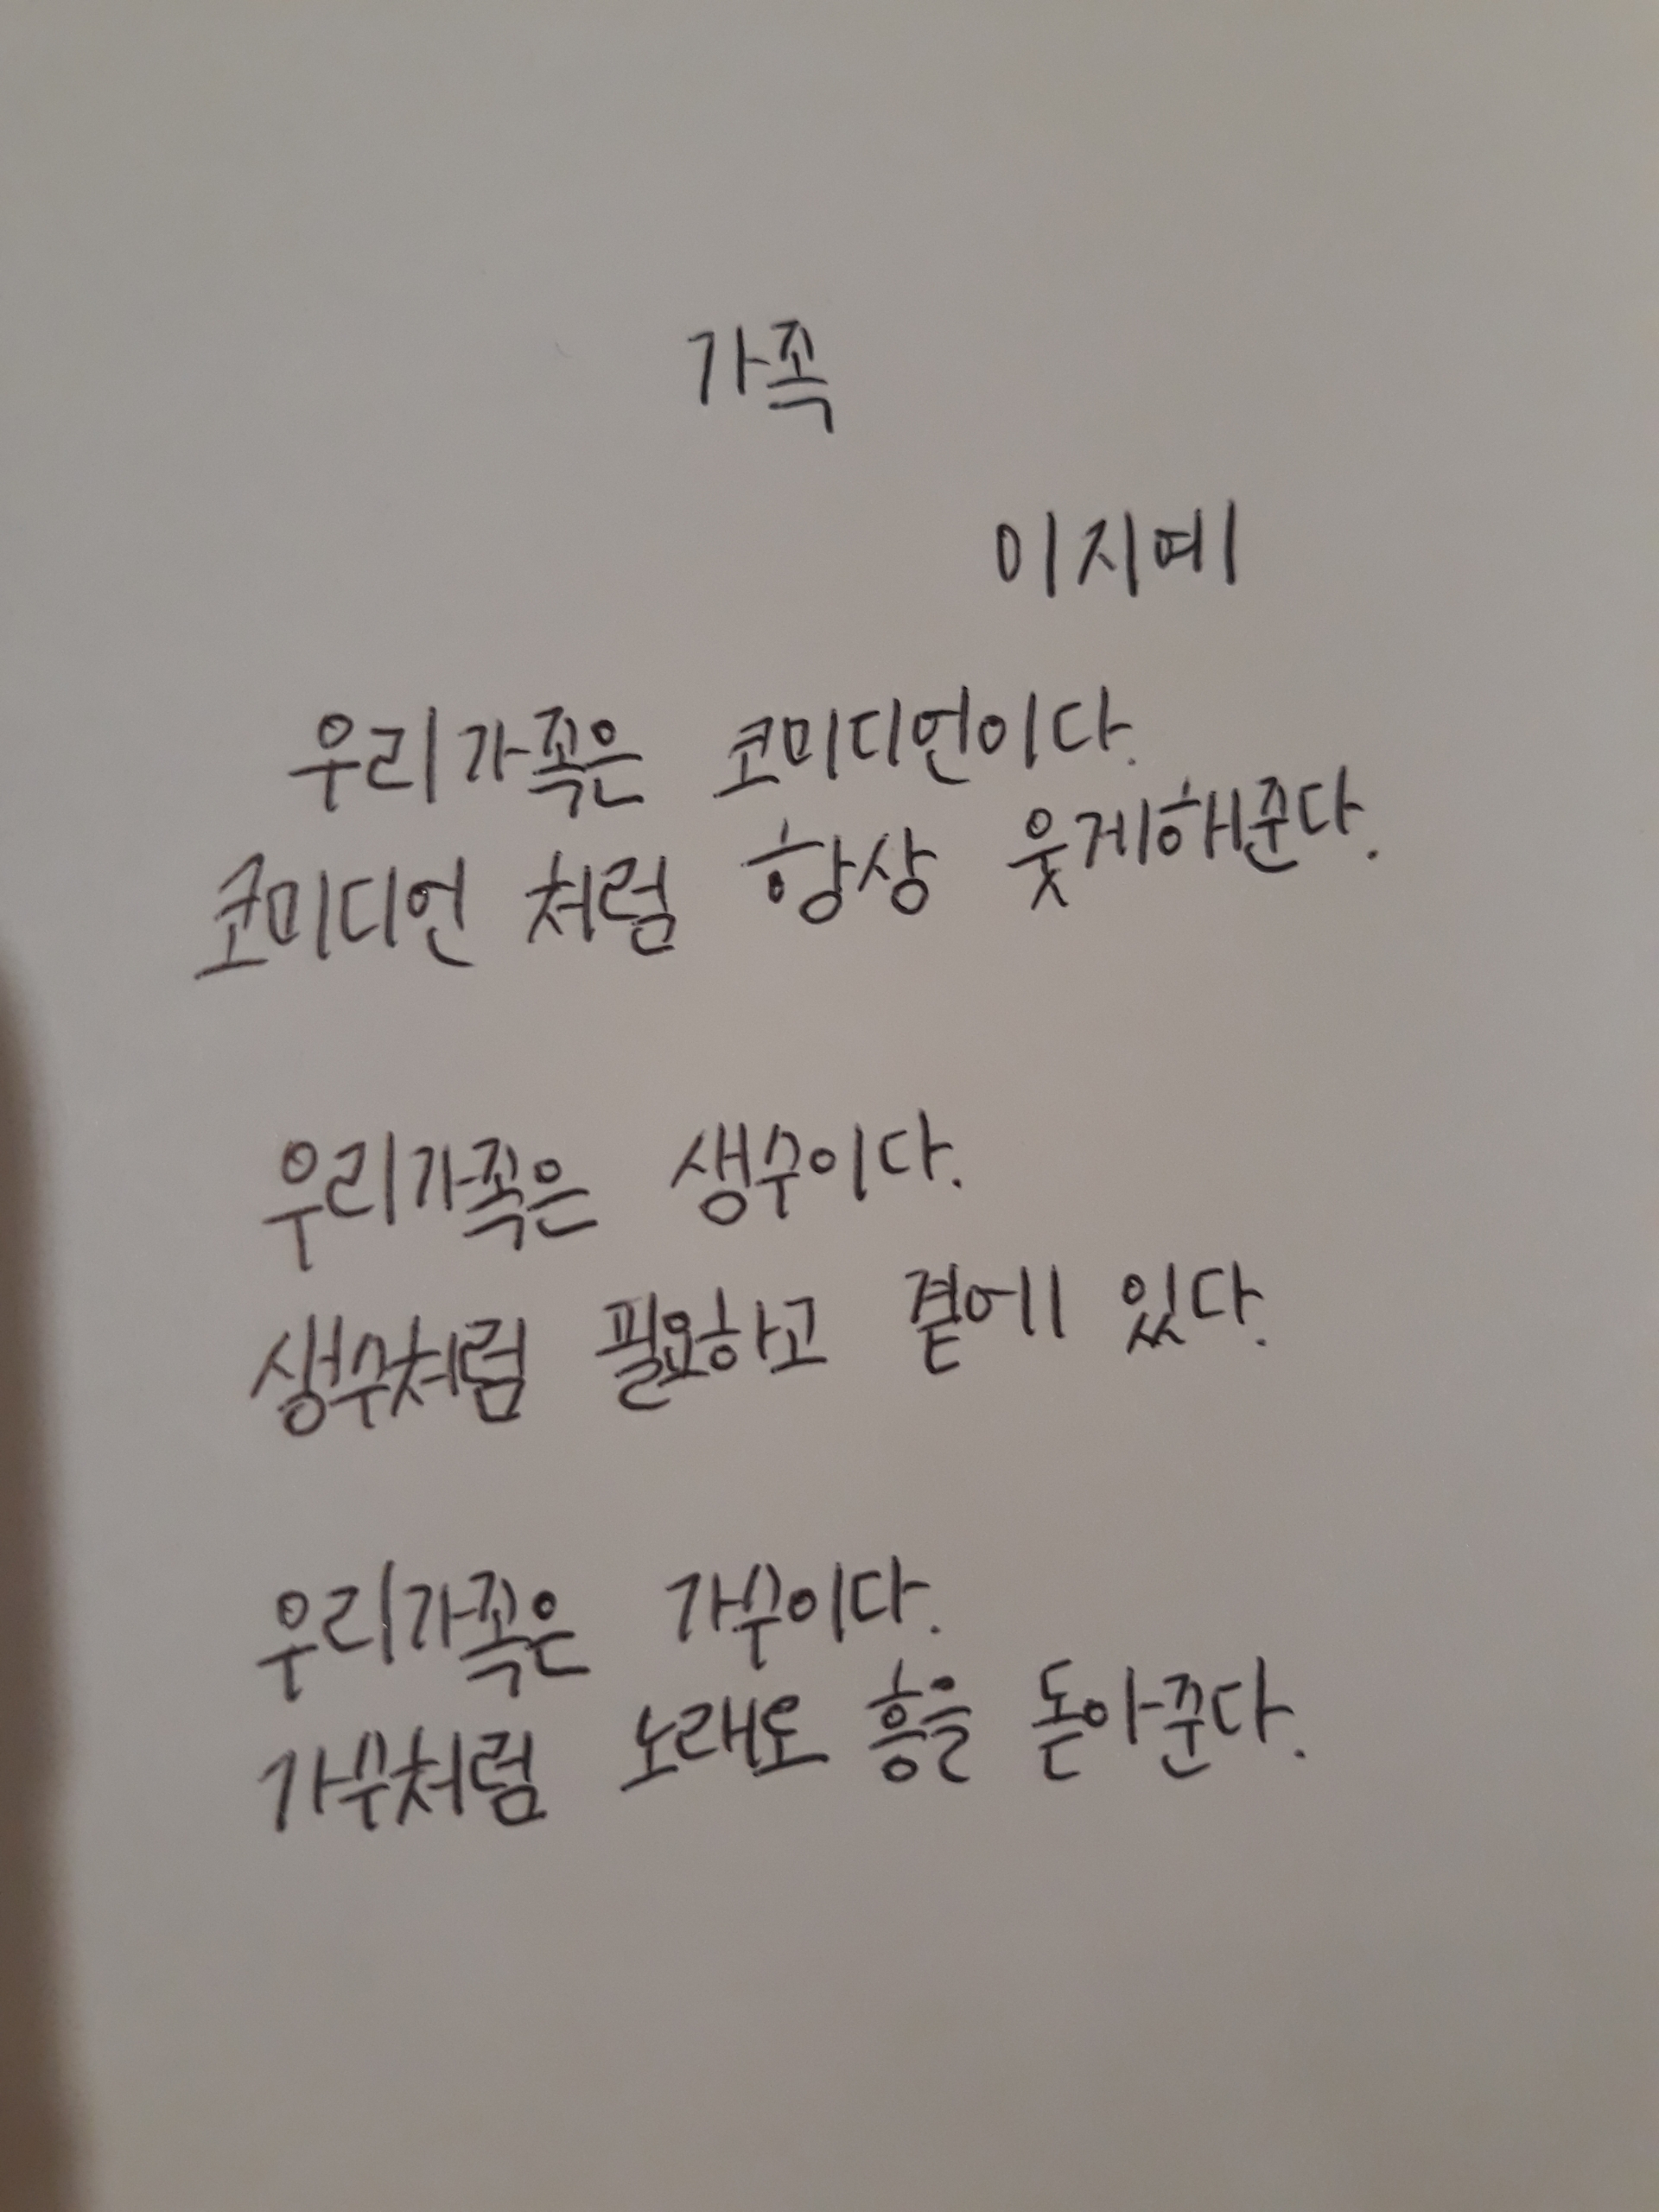 가족
이지예
우리가족은 코미디언이다.
코미디언 처럼 항상 웃게해준다.
우리가족은 생수이다.
생수처럼 필요하고 곁에 있다.
우리가족은 가수이다.
가수처럼 노래로 흥을 돋아준다.